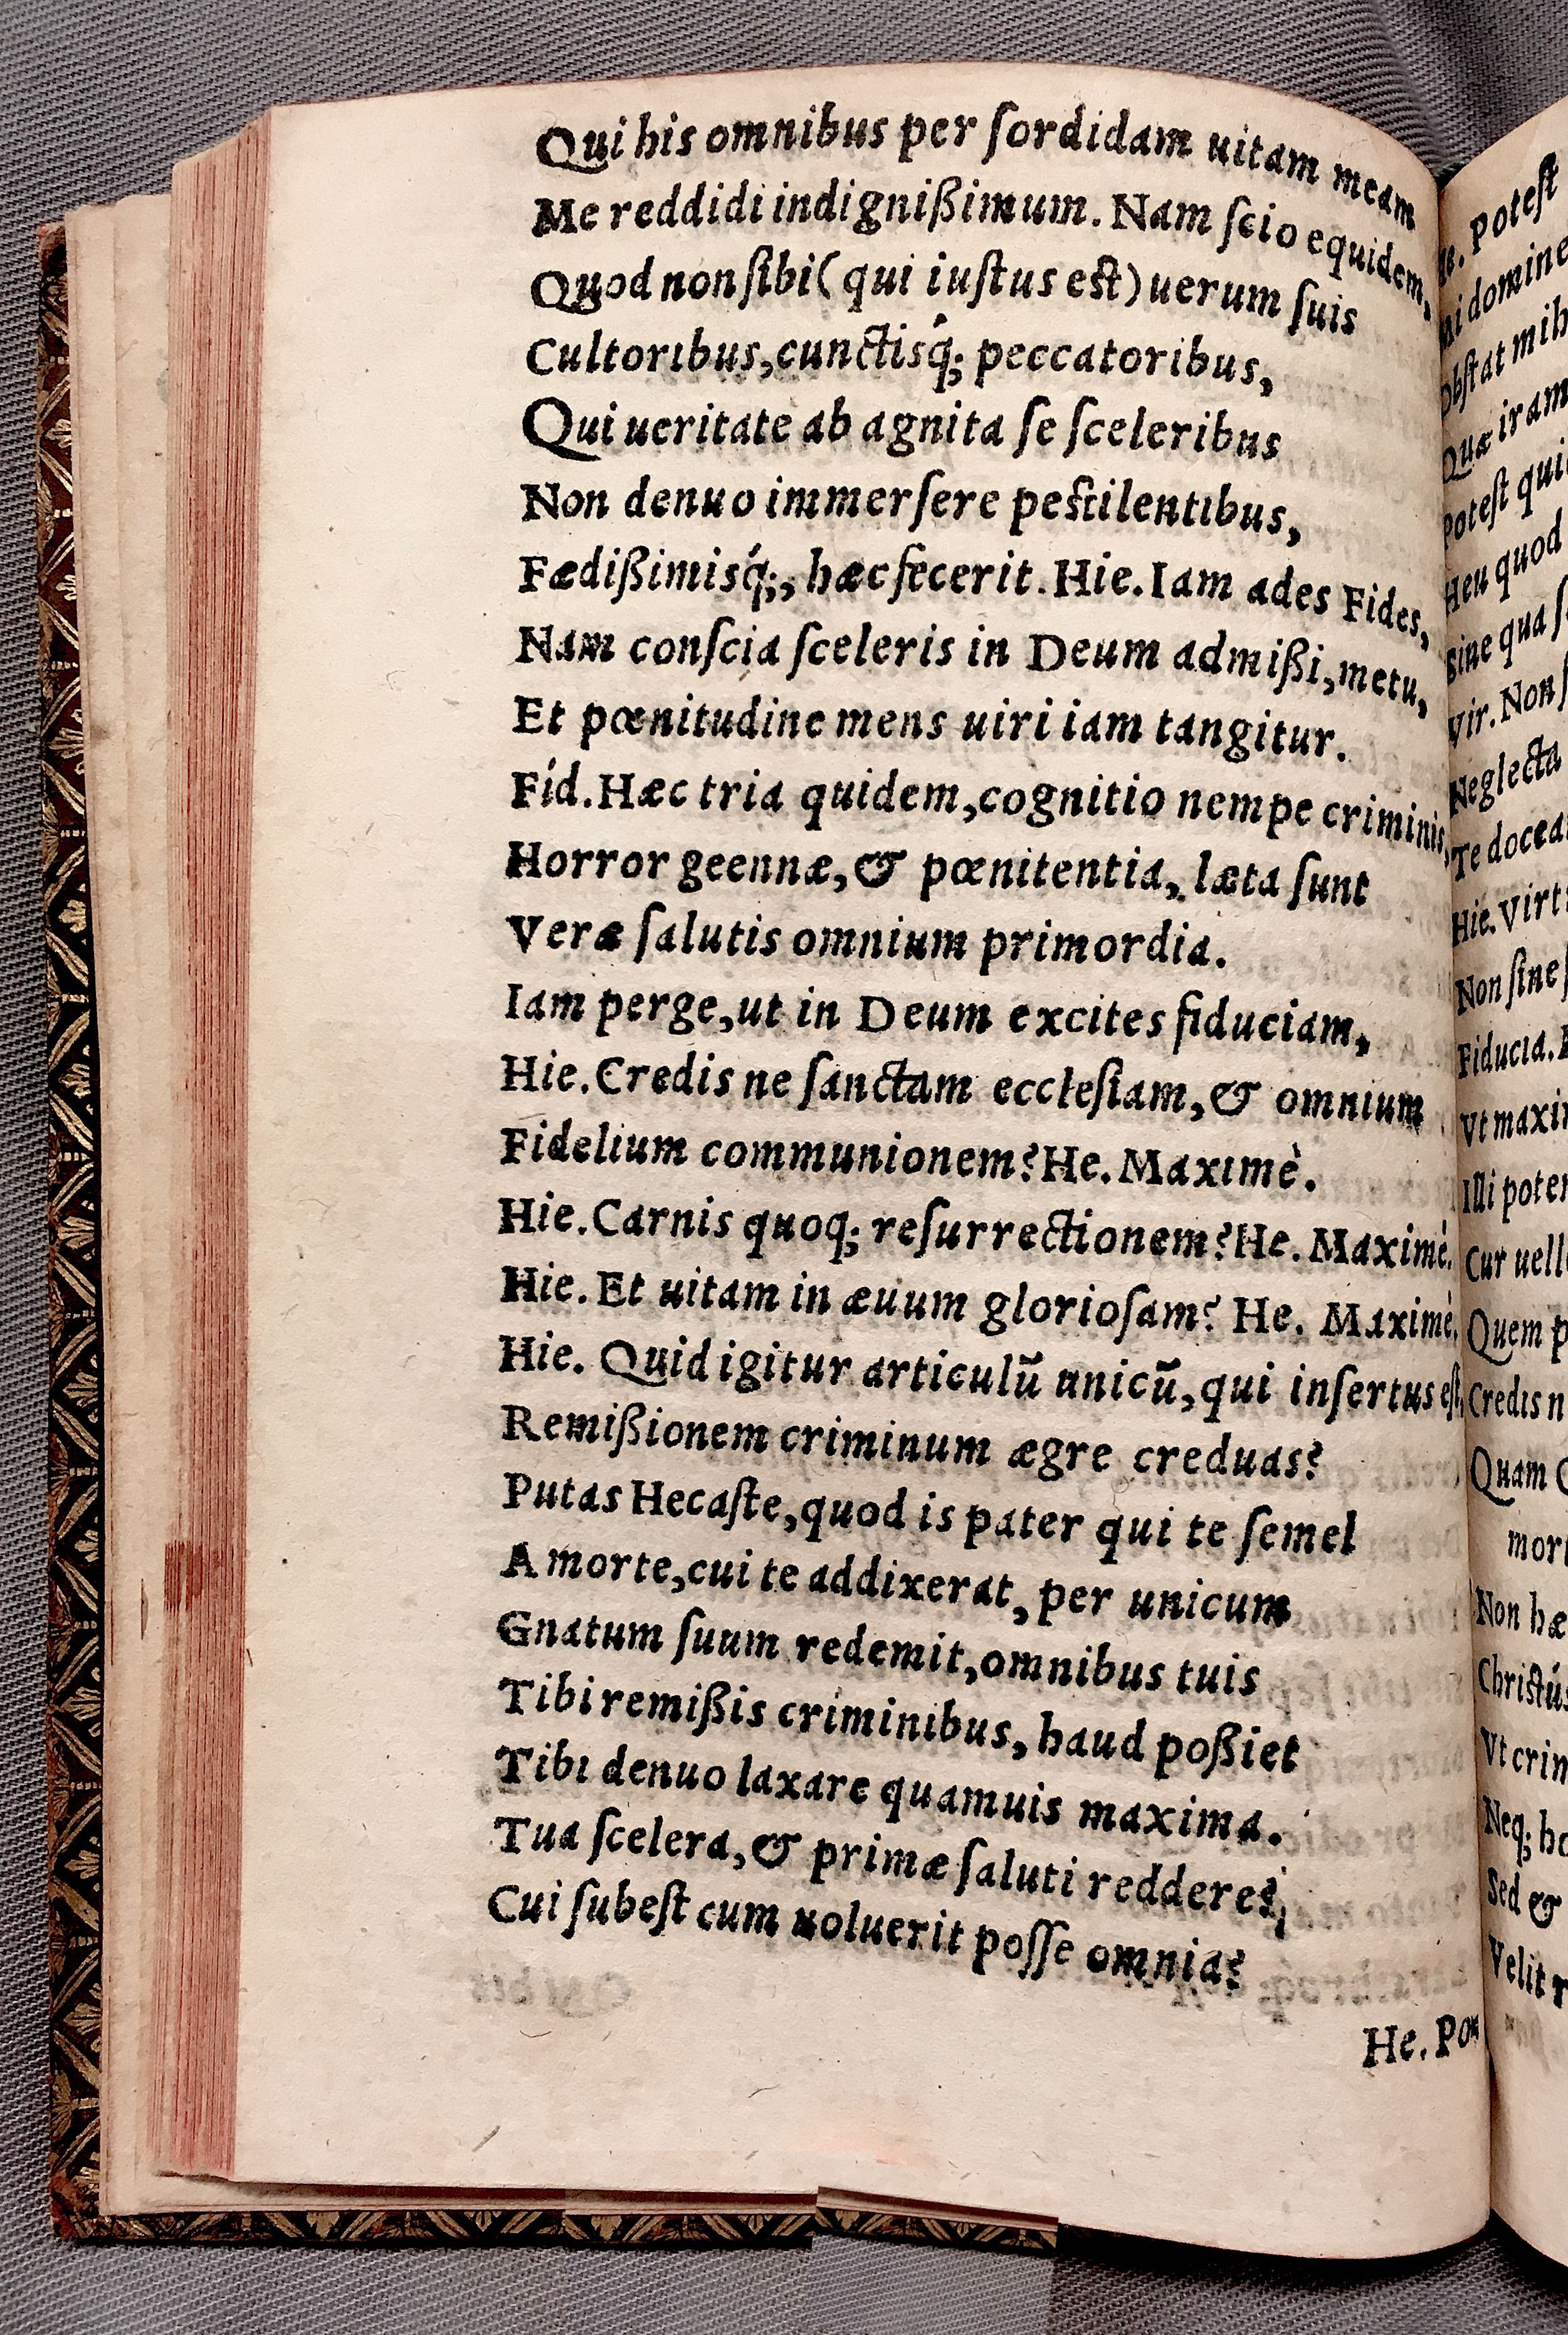 Qui his omnibus per ſordidam uitam meam
Me reddidi indignißimum. Nam ſcio equidem,
Quod non ſibi (qui iuſtus eſt) uerum ſuis
Cultoribus, cunctisq́; peccatoribus,
Qui ueritate ab agnita ſe ſceleribus
Non denuo immerſere peſtilentibus,
Fædißimisq́;, hæc fecerit. Hie. Iam ades Fides,
Nam conſcia ſceleris in Deum admißi, metu,
Et pœnitudine mens uiri iam tangitur.
Fid. Hæc tria quidem, cognitio nempe criminis,
Horror geennæ, & pœnitentia, læta ſunt
Veræ ſalutis omnium primordia.
Iam perge, ut in Deum excites fiduciam,
Hie. Credis ne ſanctam eccleſiam, & omnium
Fidelium communionem? He. Maximè.
Hie. Carnis quoq; reſurrectionem? He. Maximè.
Hie. Et uitam in æuum glorioſam? He. Maximè.
Hie. Quid igitur articulū unicū, qui inſertus eſt,
Remißionem criminum ægre creduas?
Putas Hecaſte, quod is pater qui te ſemel
A morte, cui te addixerat, per unicum
Gnatum ſuum redemit, omnibus tuis
Tibi remißis criminibus, haud poßiet
Tibi denuo laxare quamuis maxima.
Tua ſcelera, & primæ ſaluti reddere?
Cui ſubeſt cum uoluerit poſſe omnia?
He. Pot
Poteſt
domine
Obſtat mih
Quæ iram
Poteſt qui
Heu quod
Sine qua
Vir. Non
Neglecta
Te docea
Hie. Virt
Non ſine
Fiducia.
Vt maxi
Illi poter
Cur uell
Quem p
Credis n
Quam C
mort
Non hæ
Chriſtús
Vt crim
Neq; ho
Sed &
Velit r